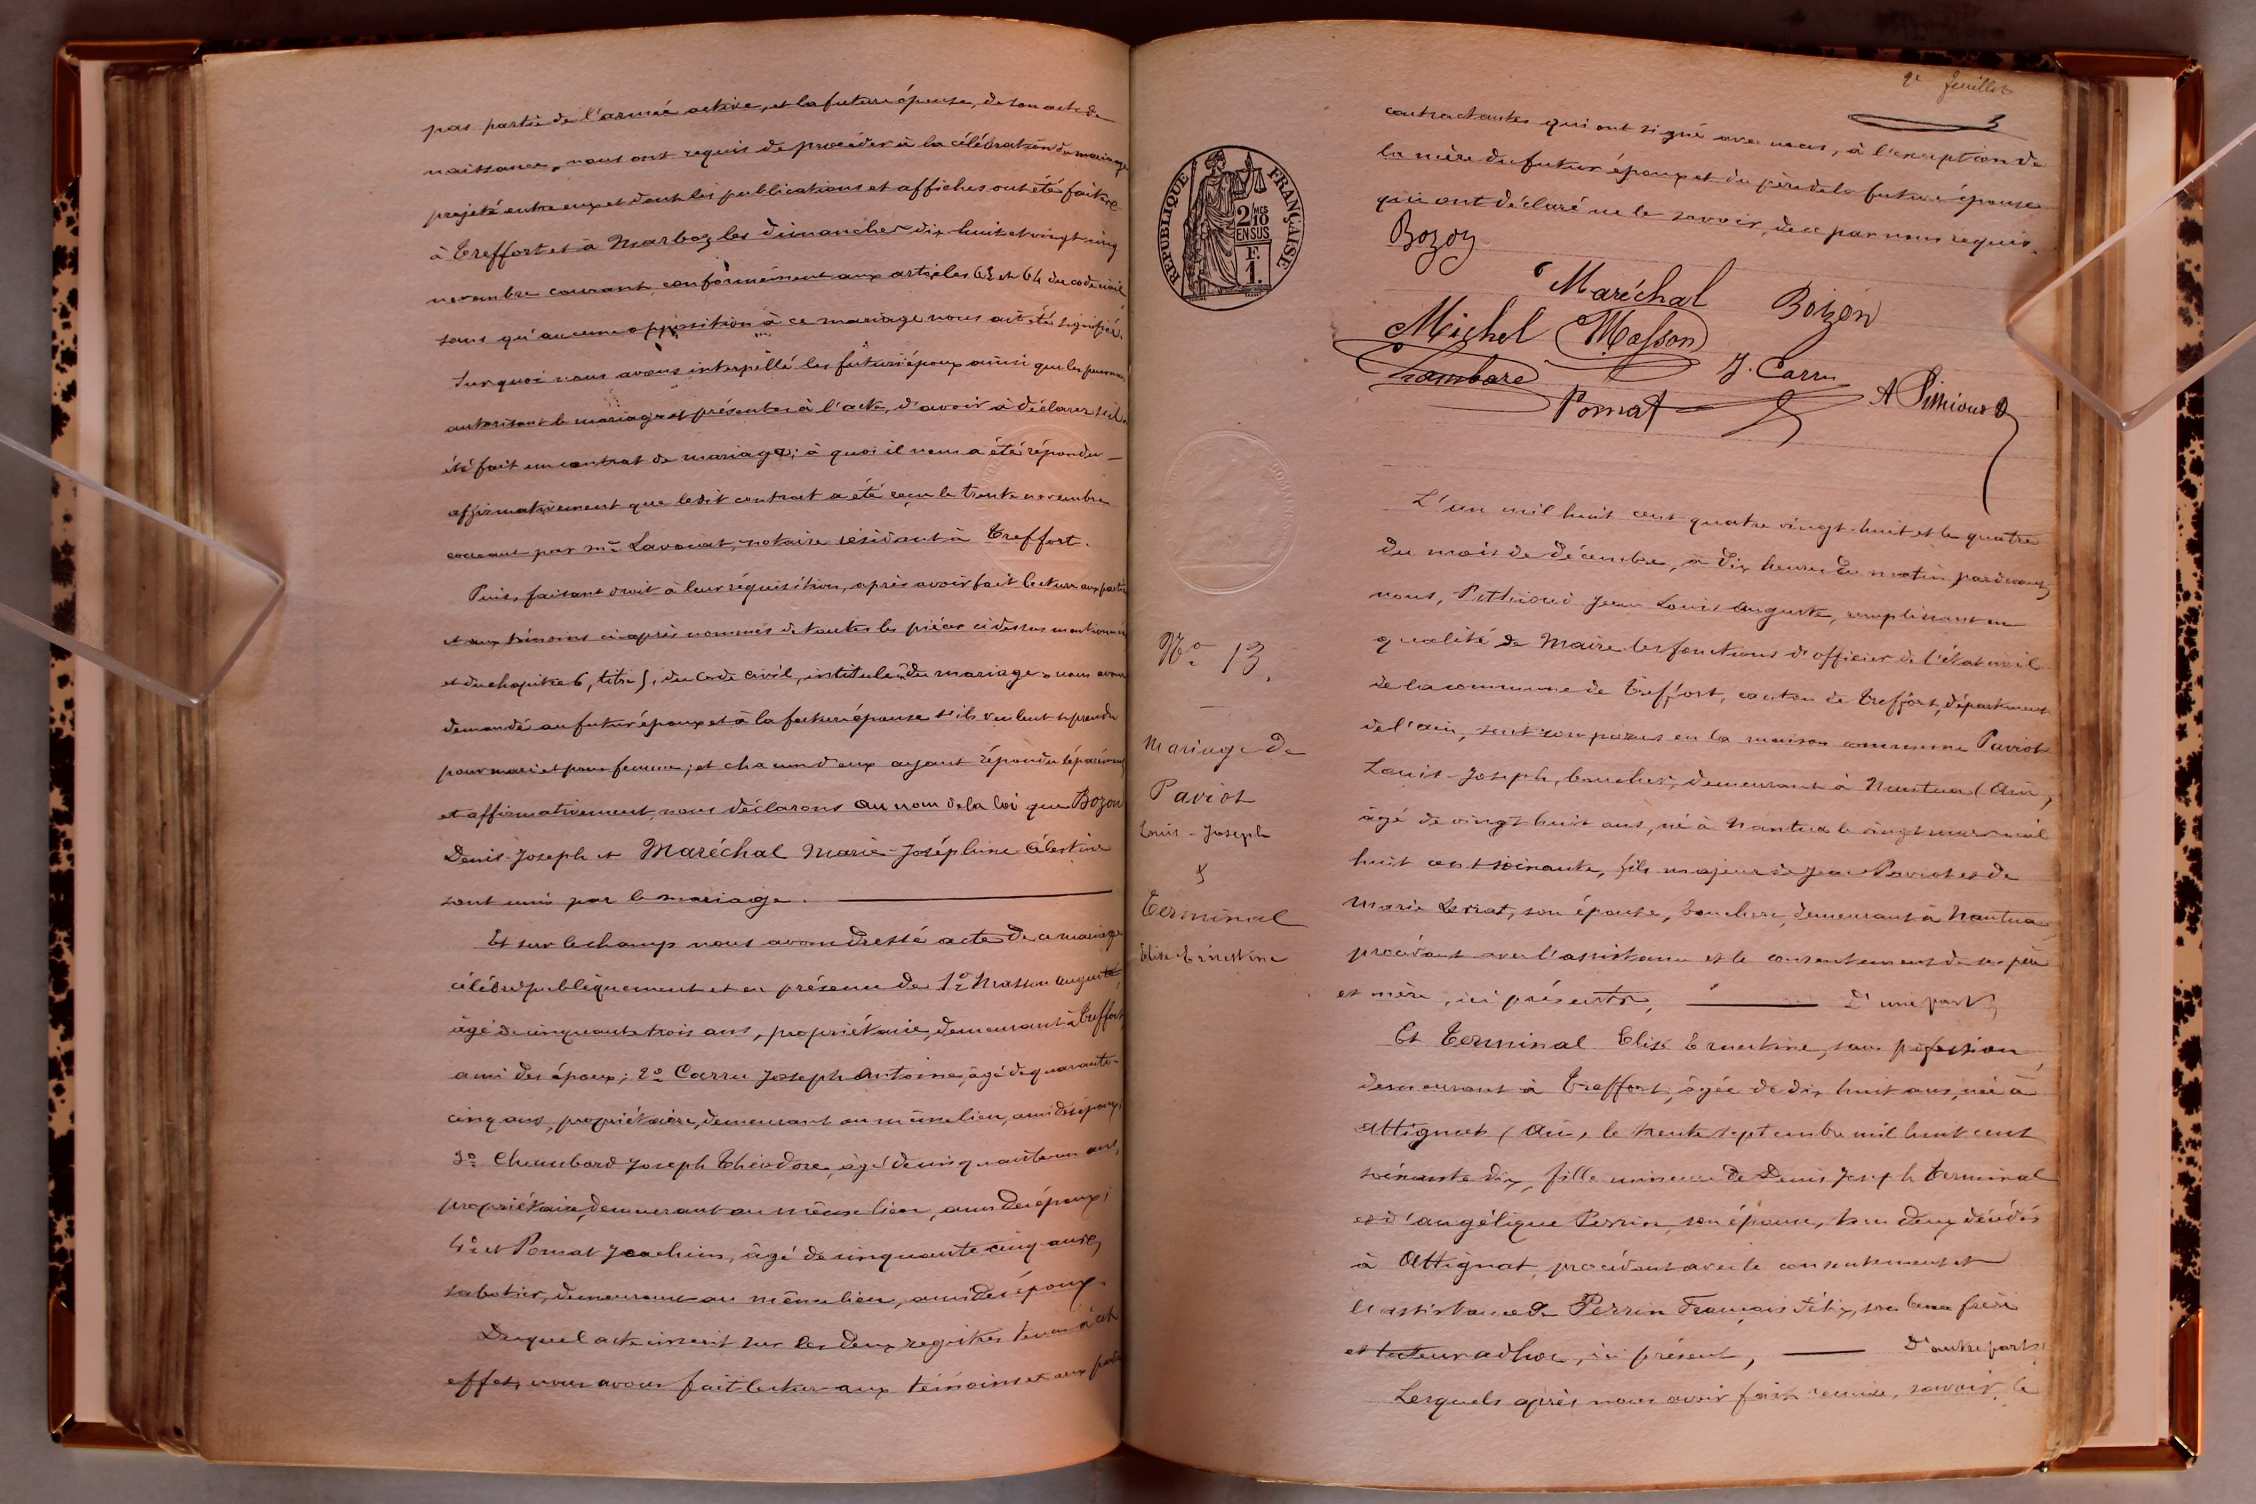 pas partie de l'armée active, et la future épouse, de son acte de
naissance, nous ont requis de procéder à la célébration du mariage
projeté entre eux et dont les publications et affiches ont été faites
à Treffort et à Marboz les dimanches dix-huit et vingt cinq
novembre courant conformément aux articles 63 et 64 du code civil
sans qu'aucune opposition à ce mariage nous ait été signifiée.
Sur quoi nous avons interpellé les futurs époux ainsi que les personnes
autorisant le mariage et présentes à l'acte, d'avoir à déclarer s'il a
été fait un contrat de mariage; à quoi il nous a été répondu
affirmativement que ledit contrat a été reçu le trente novembre
courant par Me Lavocat, notaire résidant à Treffort.
Puis, faisant droit à leur réquisition, après avoir fait lecture aux parties
et aux témoins ci-après nommés de toutes les pièces ci dessus mentionnées
et du chapitre 6, titre 5, du Code civil, intitulé "du mariage" nous avons
demandé au futur époux et à la future épouse s'ils veulent se prendre
pour mari et pour femme; et chacun d'eux ayant répondu séparément
et affirmativement, nous déclarons au nom de la loi que Bozon
Denis-Joseph et Maréchal Marie-Joséphine Célestine
sont unis par le mariage.
Et sur le champ nous avons dressé acte de ce mariage
célébré publiquement et en présence de 1o Masson Auguste,
âgé de cinquante trois ans, propriétaire, demeurant à Treffort,
ami des époux; 2o Carru Joseph Antoine, âgé de quarante-
cinq ans, propriétaire, demeurant au même lieu, ami des époux;
3o Chambard Joseph Théodore, âgé de cinquante un ans,
propriétaire, demeurant au même lieu, ami des époux;
4o et Pomat Joachim, âgé de cinquante cinq ans,
sabotier, demeurant au même lieu, ami des époux.
Duquel acte inscrit sur les deux registres tenus à cet
effet, nous avons fait lecture aux témoins et aux parties
2e feuillet
3
contractantes qui ont signé avec nous, à l'exception de
la mère du futur époux et du père de la future épouse
qui ont déclaré ne le savoir, de ce par nous requis.
Bozon
Maréchal Bozon
Michel Masson
Chambard J. Carru
Pomat A Pitthioud
RÉPUBLIQUE FRANÇAISE
2/10 EN SUS
F. 1.
L'an mil huit cent quatre vingt-huit et le quatre
du mois de décembre, à dix heures du matin, pardevant
nous, Pitthioud Jean Louis Auguste, remplissant en
qualité de Maire les fonctions d'officier de l'état civil
de la commune de Treffort, canton de Treffort, département
de l'Ain, sont comparus en la maison commune Paviot
Louis-Joseph, boucher, demeurant à Nantua (Ain),
âgé de vingt huit ans, né à Nantua le vingt mars mil
huit cent soixante, fils majeur de Jean Paviot et de
Marie son épouse, bouchers, demeurant à Nantua,
procédant avec l'assistance et le consentement de ses père
et mère, ici présents, D'une part,
No 13.
Mariage de
Paviot
Louis-Joseph
&
Terminal
Elise-Ernestine
Et Terminal Elise Ernestine, sans profession,
demeurant à Treffort, âgée de dix huit ans, née à
Attignat (Ain), le trente septembre mil huit cent
soixante dix, fille mineure de Denis Joseph Terminal
et d'Angélique Perrin, son épouse, tous deux décédés
à Attignat, procédant avec le consentement et
l'assistance de Perrin François Félix, son beau frère
et tuteur adhoc, ici présent, D'autre part.
Lesquels après nous avoir fait remise, savoir, le